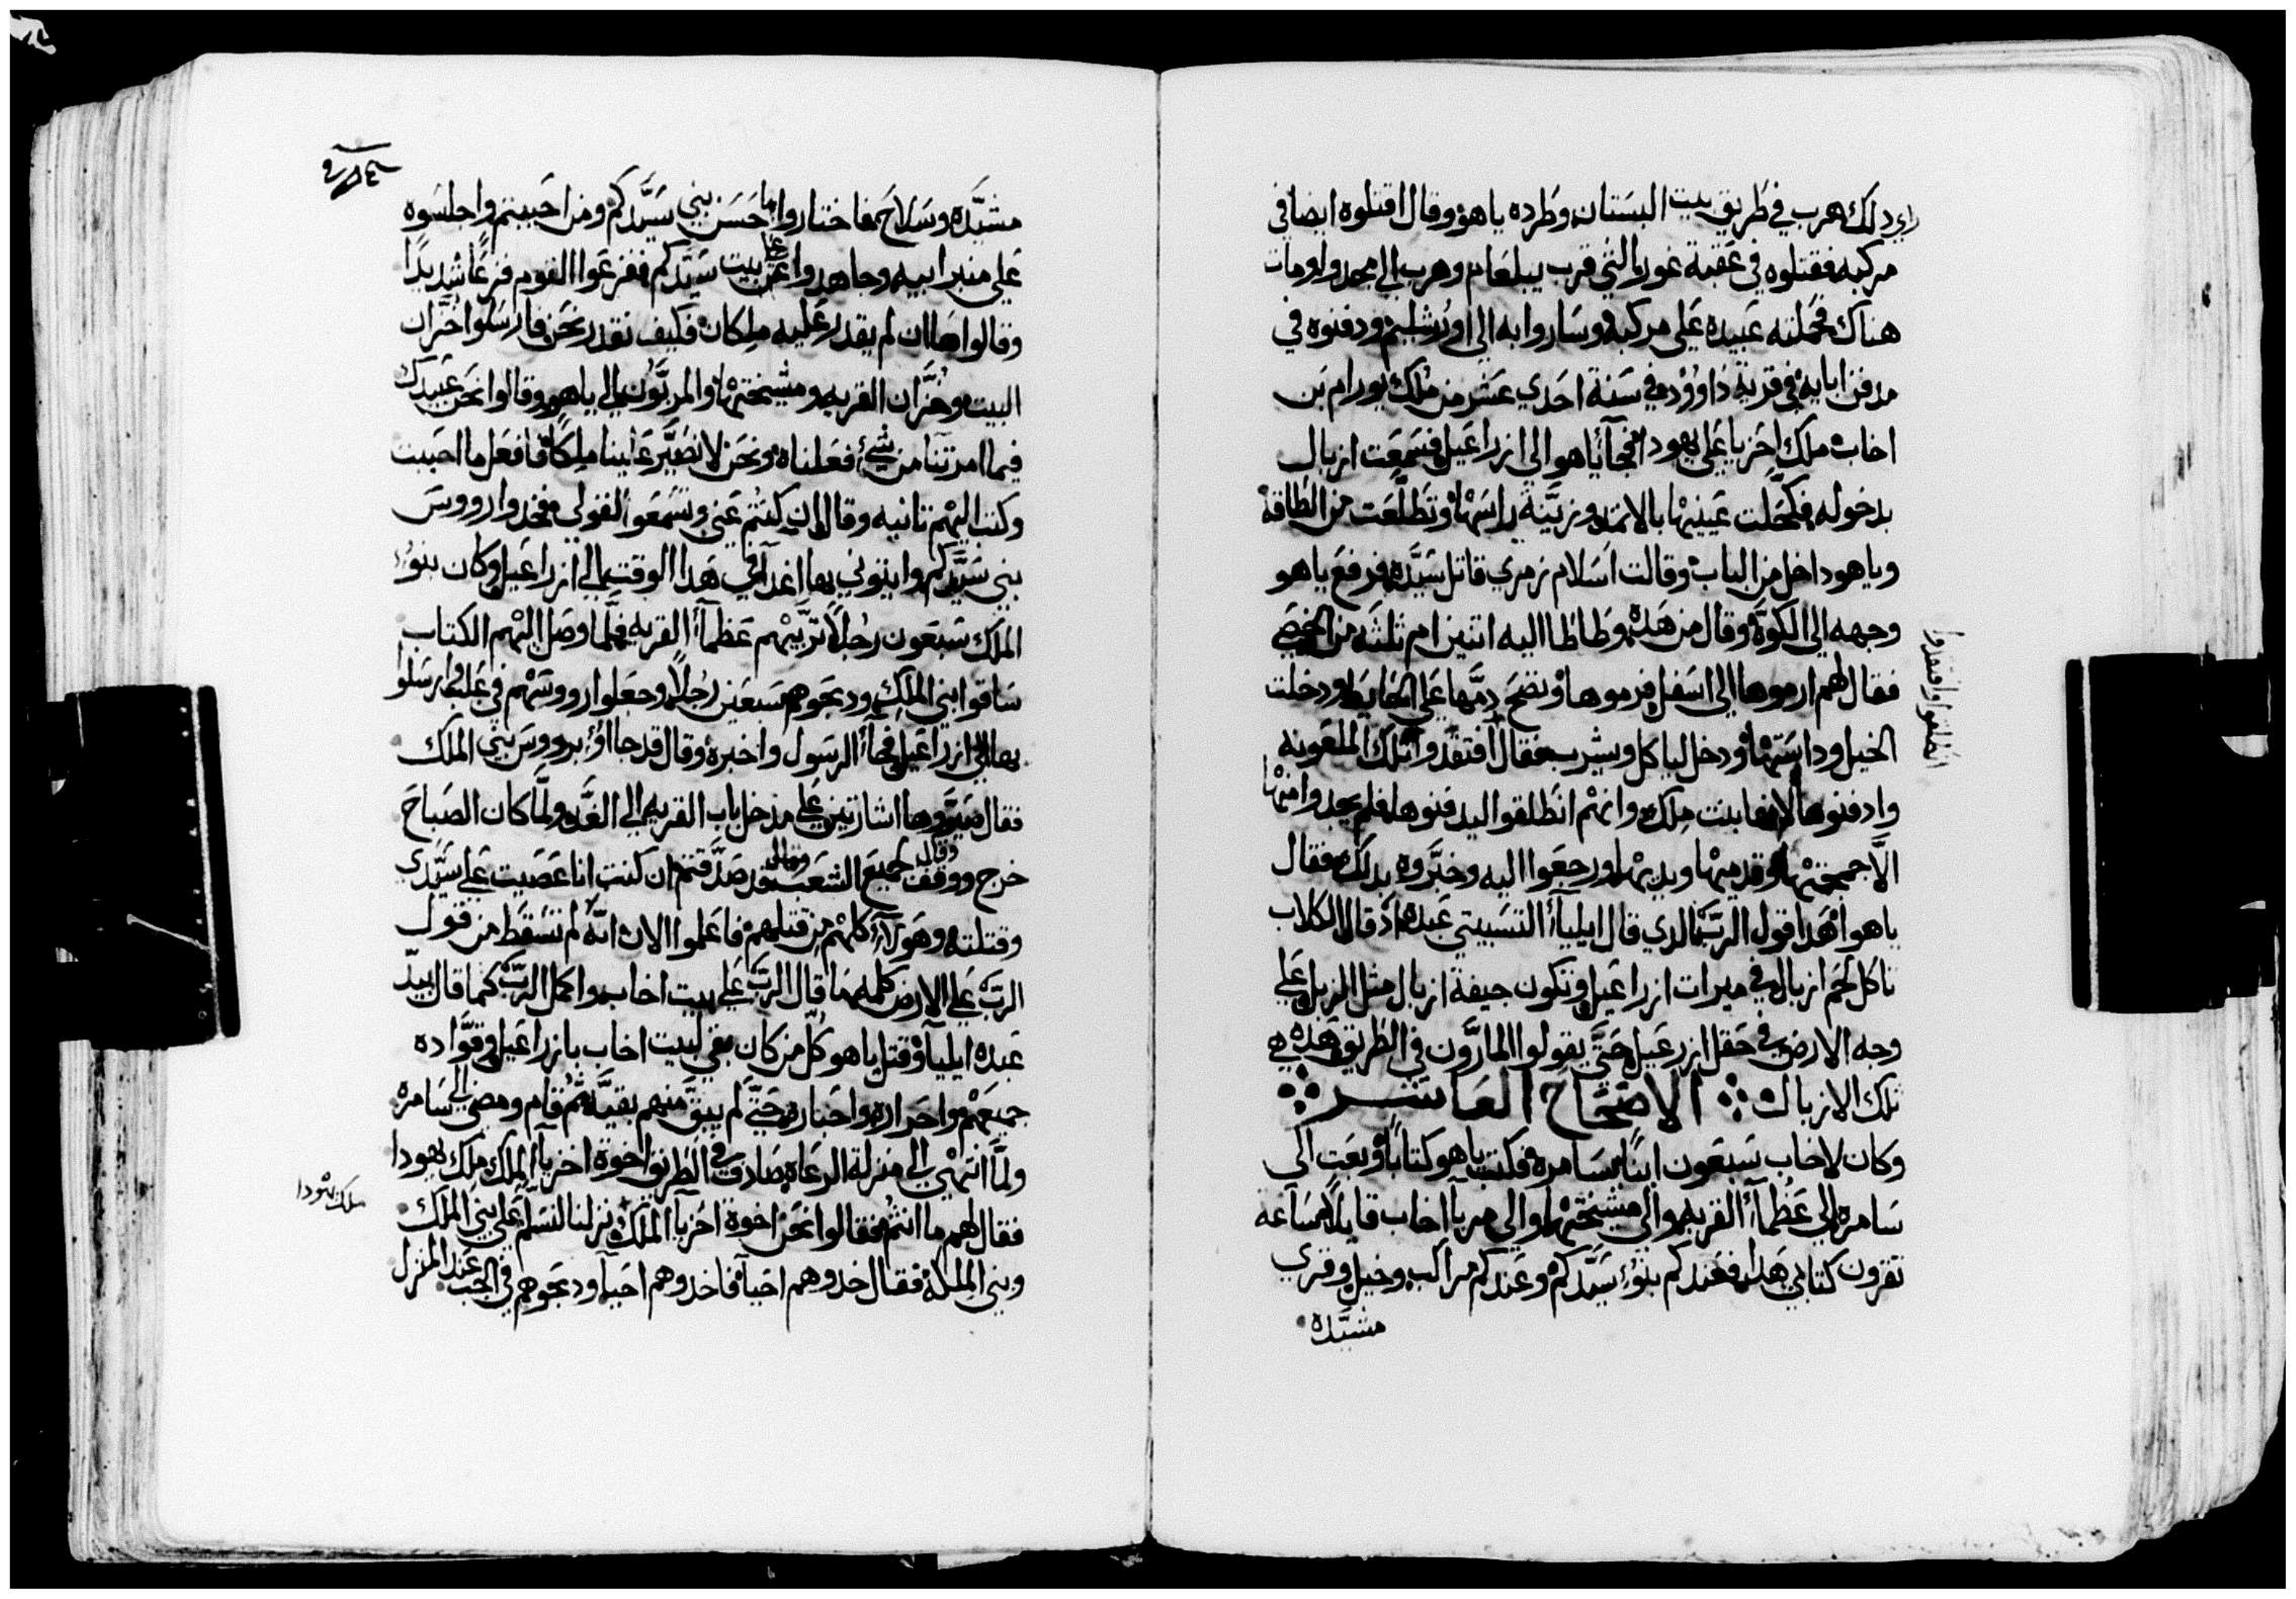 راي دلك هرب في طريق بيت البستان وطرده ياهو وقال اقتلوه ايضا في
مركبه فقتلوه في عقبة غور التي قرب يبلعام وهرب الي مجدوا ومات
هناك فحملته عبيده علي مركبه وساروا به الي اورشليم ودفنوه في
مدفن ابايه في قرية داوود وفي سنة احدي عشر من ملك يورام بن
اخاب ملك احزيا علي يهودا فجآ ياهو الي ازراعيل فسمعت ازبال
بدخوله فكحلت عينيها بالاتمد وزينة راسها وتطلعت من الطاقة
وياهو داخل من الباب وقالت اسلام زمري قاتل سيده فرفع ياهو
وجهه الي الكوة وقال من هده وطاطا اليه اتنين ام ثلثه من الخصي
فقال لهم ارموها الي اسفل فرموها ونضح دمها علي الحايط ودخلت
الخيل وداستها ودخل لياكل ويشرب فقال افتقدوا تلك الملعونه
وادفنوها لانها بنت ملك وانهم انطلقوا ليدفنوها فلم يجدوا منها
الا جمجمتها وقدميها ويديها ورجعوا اليه وخبروه بدلك فقال
ياهو هدا قول الرب الدي قال ايليآ التسبيتي عبده اد قال الكلاب
تاكل لحم ازبال في ميرات ازراعيل وتكون جيفة ازبال مثل الزبل علي
وجه الارض في حقل ازرعيل حتي يقولوا المارون في الطريق هده هي
تلك الازبال الاصحاح العاشر
وكان لاخاب سبعون ابنا بسامره فكتب ياهو كتابا وبعت الي
سامره الي عظمآ القريه والي مشيختها والي مربآ اخاب قايلا ساعة
تقرون كتابي هدا فعندكم بنوء سيدكم وعندكم مراكب وخيل وقري
مشيده
انطلقوا وافتقدوا
مشيده وسلاح فاختاروا ما حسن بني سيدكم ومن احببتم واجلسوه
علي منبر ابيه وجاهدوا عن بيت سيدكم ففزعوا القوم فزعا شديدا
وقالوا هاان لم يقدر عليه ملكان فكيف نقدر نحن فارسلوا خزان
البيت وخزان القريه ومشيختها والمربون الي ياهو وقالوا نحن عبيدك
فيما امرتنا من شيء فعلناه ونحن لا نصير علينا ملكا فافعل ما احببت
وكتب اليهم تانيه وقال ان كنتم عني وتسمعوا لقولي فخدوا رووس
بني سيدكم وايتوني بها غدا في هدا الوقت الي ازراعيل وكان بنوء
الملك سبعون رجلا تربيهم عظمآ القريه فلما وصل اليهم الكتاب
ساقوا بني الملك ودبحوهم سبعين رجلا وجعلوا رووسهم في غلف وارسلوا
بها الي ازراعيل فجآ الرسول واخبره وقال قد جاوء برووس بني الملك
فقال صيروها اشارتين علي مدخل باب القريه الي الغد ولما كان الصباح
خرج ووقف وقال لجميع الشعب قد صدقتم ان كنت انا عصيت علي سيدي
وقتلته وهولآء كلهم من قتلهم فاعلموا الان انه لم تسقط من قول
الرب علي الارض كلمه مما قال الرب علي بيت اخاب واكمل الرب كما قال بيد
عبده ايليآ وقتل ياهو كل من كان بقي لبيت اخاب بازراعيل وقواده
جميعهم واحراره واحباره حتي لم يبق منهم بقيه ثم قام ومضي الي سامره
ولما انتهي الي منزلة الرعاه صادف في الطريق اخوة احزيا الملك ملك يهودا
فقال لهم ما انتم فقالوا نحن اخوة احزيا الملك نزلنا لنسلم علي بني الملك
وبني الملكه فقال خدوهم احيآ فاخدوهم احيآ ودبحوهم في الجب عند المنزل
ملك يهودا